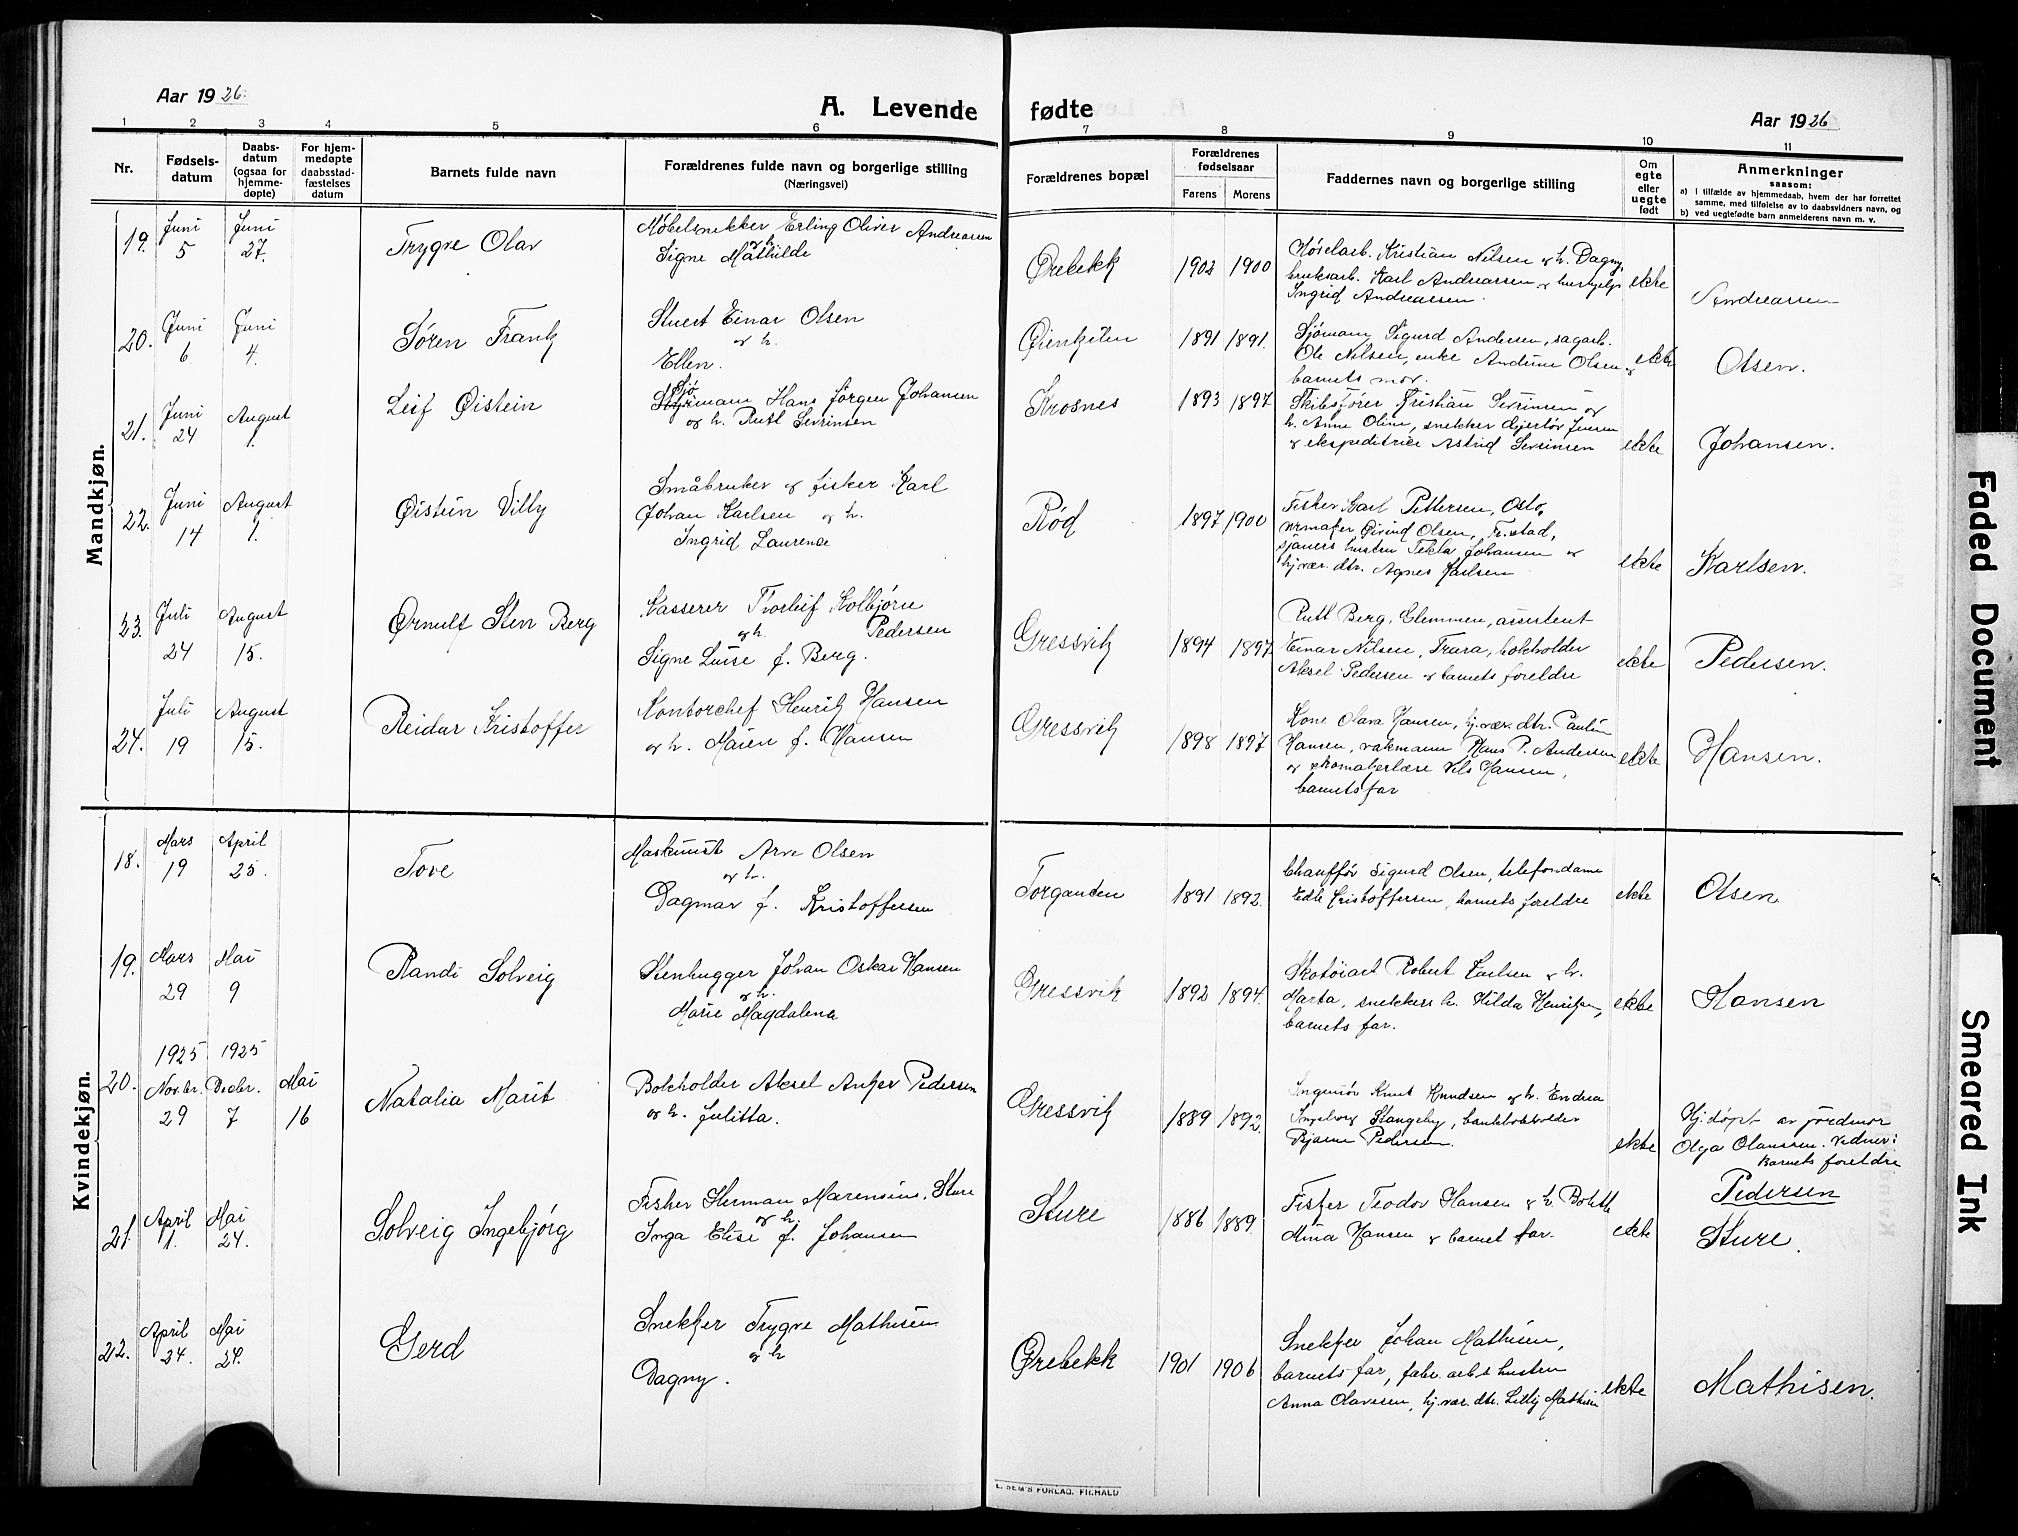 Aar 1926.
A. Levende fødte
Aar 1926
1 2 3 4 5 6 7 8 9 10 11
Nr.
Fødsels-
datum
Daabs-
datum
(ogsaa for
hjemme-
døpte)
For hjem-
medøpte
daabsstad-
fæstelses
datum
Barnets fulde navn
Forældrenes fulde navn og borgerlige stilling
(Næringsvei)
Forældrenes bopæl
Forældrenes
fødselsaar
Farens Morens
Faddernes navn og borgerlige stilling
Om
egte
eller
uegte
født
Anmerkninger
saasom:
a) I tilfælde av hjemmedaab, hvem der har forrettet
samme, med tilføielse av to daabsvidners navn, og
b) ved uegtefødte barn anmelderens navn m. v.
Mandkjøn.
19.
Juni
5
Juni
27.
Trygve Olav
Møbelsnekker Erling Oliver Andreassen
og h.
Signe Mathilde
Ørebekk
1902 1900
Høvelarb. Kristian Nilsen og h. Dagny,
bruksarb. Karl Andreassen og hushjelp
Ingrid Andreassen.
ekte
Andreassen
20.
Juni
6
Juni
4.
Søren Frank
Stuert Einar Olsen
og h.
Ellen.
Øienkilen
1891 1891.
Sjømann Sigurd Andersen, sagarb.
Ole Nilsen, enke Andrine Olsen og
barnets mor.
ekte
Olsen.
21.
Juni
24
August
1.
Leif Øistein
Sjø
Styrmann Hans Jørgen Johansen
og h. Rutt Sevrinsen
Krosnes
1893 1897
Skibsfører Kristian Sevrinsen og
h. Anne Oline, snekker Hjertør Jensen
og ekspeditrice Astrid Sevrinsen
ekte
Johansen.
22.
Juni
14
August
1.
Øistein Villy
Småbruker og fisker Karl
Johan Karlsen og h.
Ingrid Laurence
Rød
1897 1900
Fisker Karl Pettersen, Oslo,
urmaker Øivind Olsen, Fr.stad,
sjømanns hustru Tekla Johansen og
hj.vær. dtr. Agnes Karlsen
ekte
Karlsen.
23.
Juli
24
August
15.
Ørnulf Sten Berg
Kasserer Thorleif Kolbjørn
og h. Pedersen
Signe Luise f. Berg.
Gressvik
1894 1897
Rutt Berg, Glemmen, assistent
Einar Nilsen, Trara, bokholder
Aksel Pedersen og barnets foreldre
ekte
Pedersen.
24.
Juli
19
August
15.
Reidar Kristoffer
Kontorchef Henrik Hansen
og h. Maien f. Hansen
Gressvik
1898 1897
Kone Olava Hansen, hj.vær. dtr. Pauline
Hansen, vakmann Hans P. Andersen
og skomakerlære Nils Hansen,
barnets far
ekte
Hansen.
Kvindekjøn.
18.
Mars
19
April
25.
Tove
Maskinist Arve Olsen
og h.
Dagmar f. Kristoffersen
Torgauten
1891 1892.
Chauffør Sigurd Olsen, telefondame
Edle Kristoffersen, barnets foreldre
ekte
Olsen
19.
Mars
29
Mai
9
Randi Solveig
Stenhugger Johan Oskar Hansen
og h.
Marie Magdalena
Gressvik
1892 1894.
Skotøiarb. Robert Karlsen og h.
Marta, snekkers h. Hilda Henriksen,
barnets far.
ekte
Hansen
20.
1925
Novbr.
29
1925
Decbr.
7
Mai
16
Natalia Marit
Bokholder Aksel Anker Pedersen
og h. Julitta.
Gressvik
1889 1892.
Ingeniør Knut Knudsen og h. Endrea
Ingeborg Stangeby, bankbokholder
Bjarne Pedersen.
ekte
Hj.døpt av jordmor
Olga Olaussen. Vidner:
Barnets foreldre
Pedersen
21.
April
1.
Mai
24.
Solveig Ingebjørg
Fisker Herman Marensius Sture
og h.
Inga Elise f. Johansen
Sture
1886 1889.
Fisker Teodor Hansen og h. Bolette
Mina Hansen og barnet far.
ekte
Sture.
22.
April
24.
Mai
24.
Gerd
Snekker Trygve Mathisen
og h
Dagny.
Ørebekk
1901 1906
Snekker Johan Mathisen,
barnets far, fabr. arb.s hustru
Anna Olavesen, hj.vær. dtr. Lilly Mathisen
ekte
Mathisen.
E. SEM'S FORLAG, FR.HALD
Faded Document
Smeared Ink